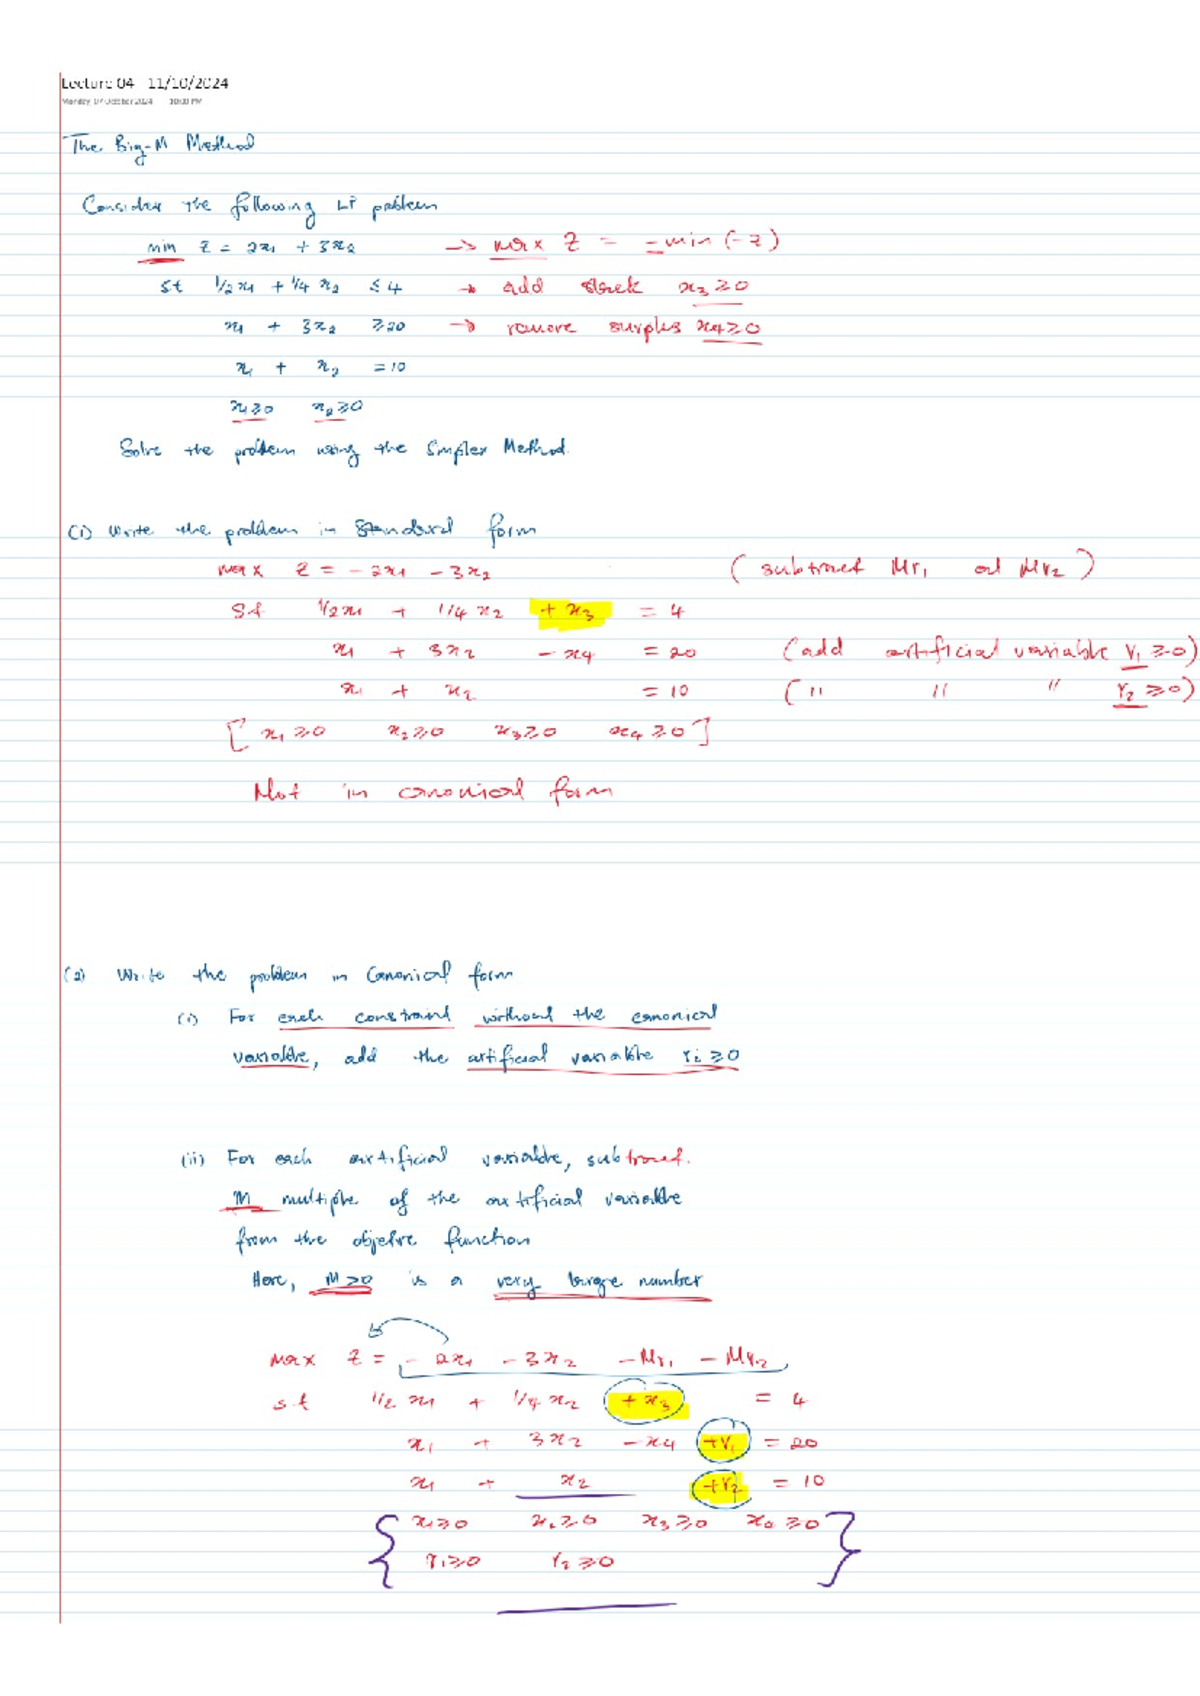 Lecture 04 11/10/2024
Monday, 07 October 2024 10:00 PM
The Big-M Method
Consider the following LP problem
min z = 2x₁ + 3x₂ → max z = -min (-z)
st 1/2x₁ + 1/4 x₂ ≤ 4 → add slack x₃ ≥ 0
x₁ + 3x₂ ≥ 20 → remove surplus x₄ ≥ 0
x₁ + x₂ = 10
x₁ ≥ 0 x₂ ≥ 0
Solve the problem using the Simplex Method.
(1) Write the problem in Standard form
max z = -2x₁ - 3x₂ (subtract Mr₁ ad Mr₂)
st 1/2x₁ + 1/4 x₂ + x₃ = 4
x₁ + 3x₂ - x₄ = 20 (add artificial variable r₁ ≥ 0)
x₁ + x₂ = 10 (" " " r₂ ≥ 0)
[x₁ ≥ 0 x₂ ≥ 0 x₃ ≥ 0 x₄ ≥ 0]
Not in canonical form
(2) Write the problem in Canonical form
(i) For each constraint without the canonical
variable, add the artificial variable rᵢ ≥ 0
(ii) For each artificial variable, subtract.
M multiple of the artificial variable
from the objetive function
Here, M > 0 is a very large number
max z = - 2x₁ - 3x₂ - Mr₁ - Mr₂
st 1/2 x₁ + 1/4 x₂ + x₃ = 4
x₁ + 3x₂ - x₄ + r₁ = 20
x₁ + x₂ + r₂ = 10
{ x₁ ≥ 0 x₂ ≥ 0 x₃ ≥ 0 x₄ ≥ 0 }
r₁ ≥ 0 r₂ ≥ 0